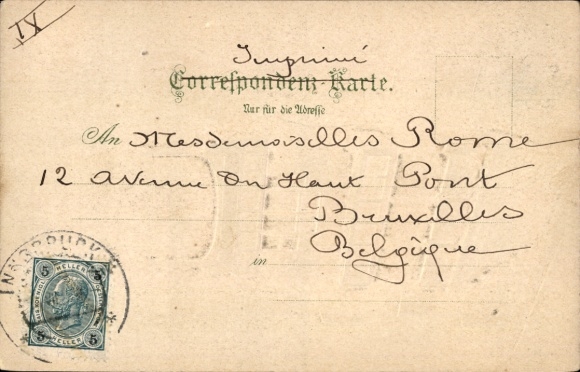 XI
Imprimé
Correspondenz-Karte.
Nur für die Adresse
An Mesdemoiselles Rome
12 Avenue du Haut Pont
Bruxelles
Belgique
in
INNSBRUCK
5 HELLER 5
5 HELLER 5